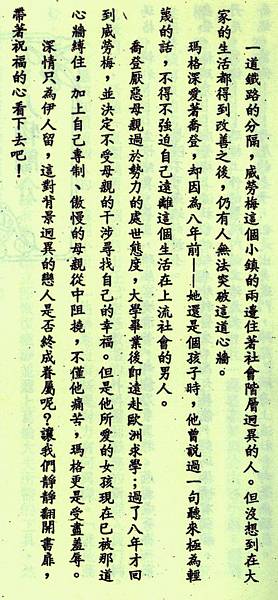 一道鐵路的分隔，威勞梅這個小鎮的兩邊住著社會階層迥異的人。但沒想到在大
家的生活都得到改善之後，仍有人無法突破這道心牆。
瑪格深愛著喬登，却因為八年前——她還是個孩子時，他曾說過一句聽來極為輕
蔑的話，不得不強迫自己遠離這個生活在上流社會的男人。
喬登厭惡母親過於勢力的處世態度，大學畢業後即遠赴歐洲求學；過了八年才回
到威勞梅，並決定不受母親的干涉尋找自己的幸福。但是他所愛的女孩現在已被那道
心牆縛住，加上自己專制、傲慢的母親從中阻撓，不僅他痛苦，瑪格更是受盡羞辱。
深情只為伊人留，這對背景迥異的戀人是否終成眷屬呢？讓我們靜靜翻開書扉，
帶著祝福的心看下去吧！